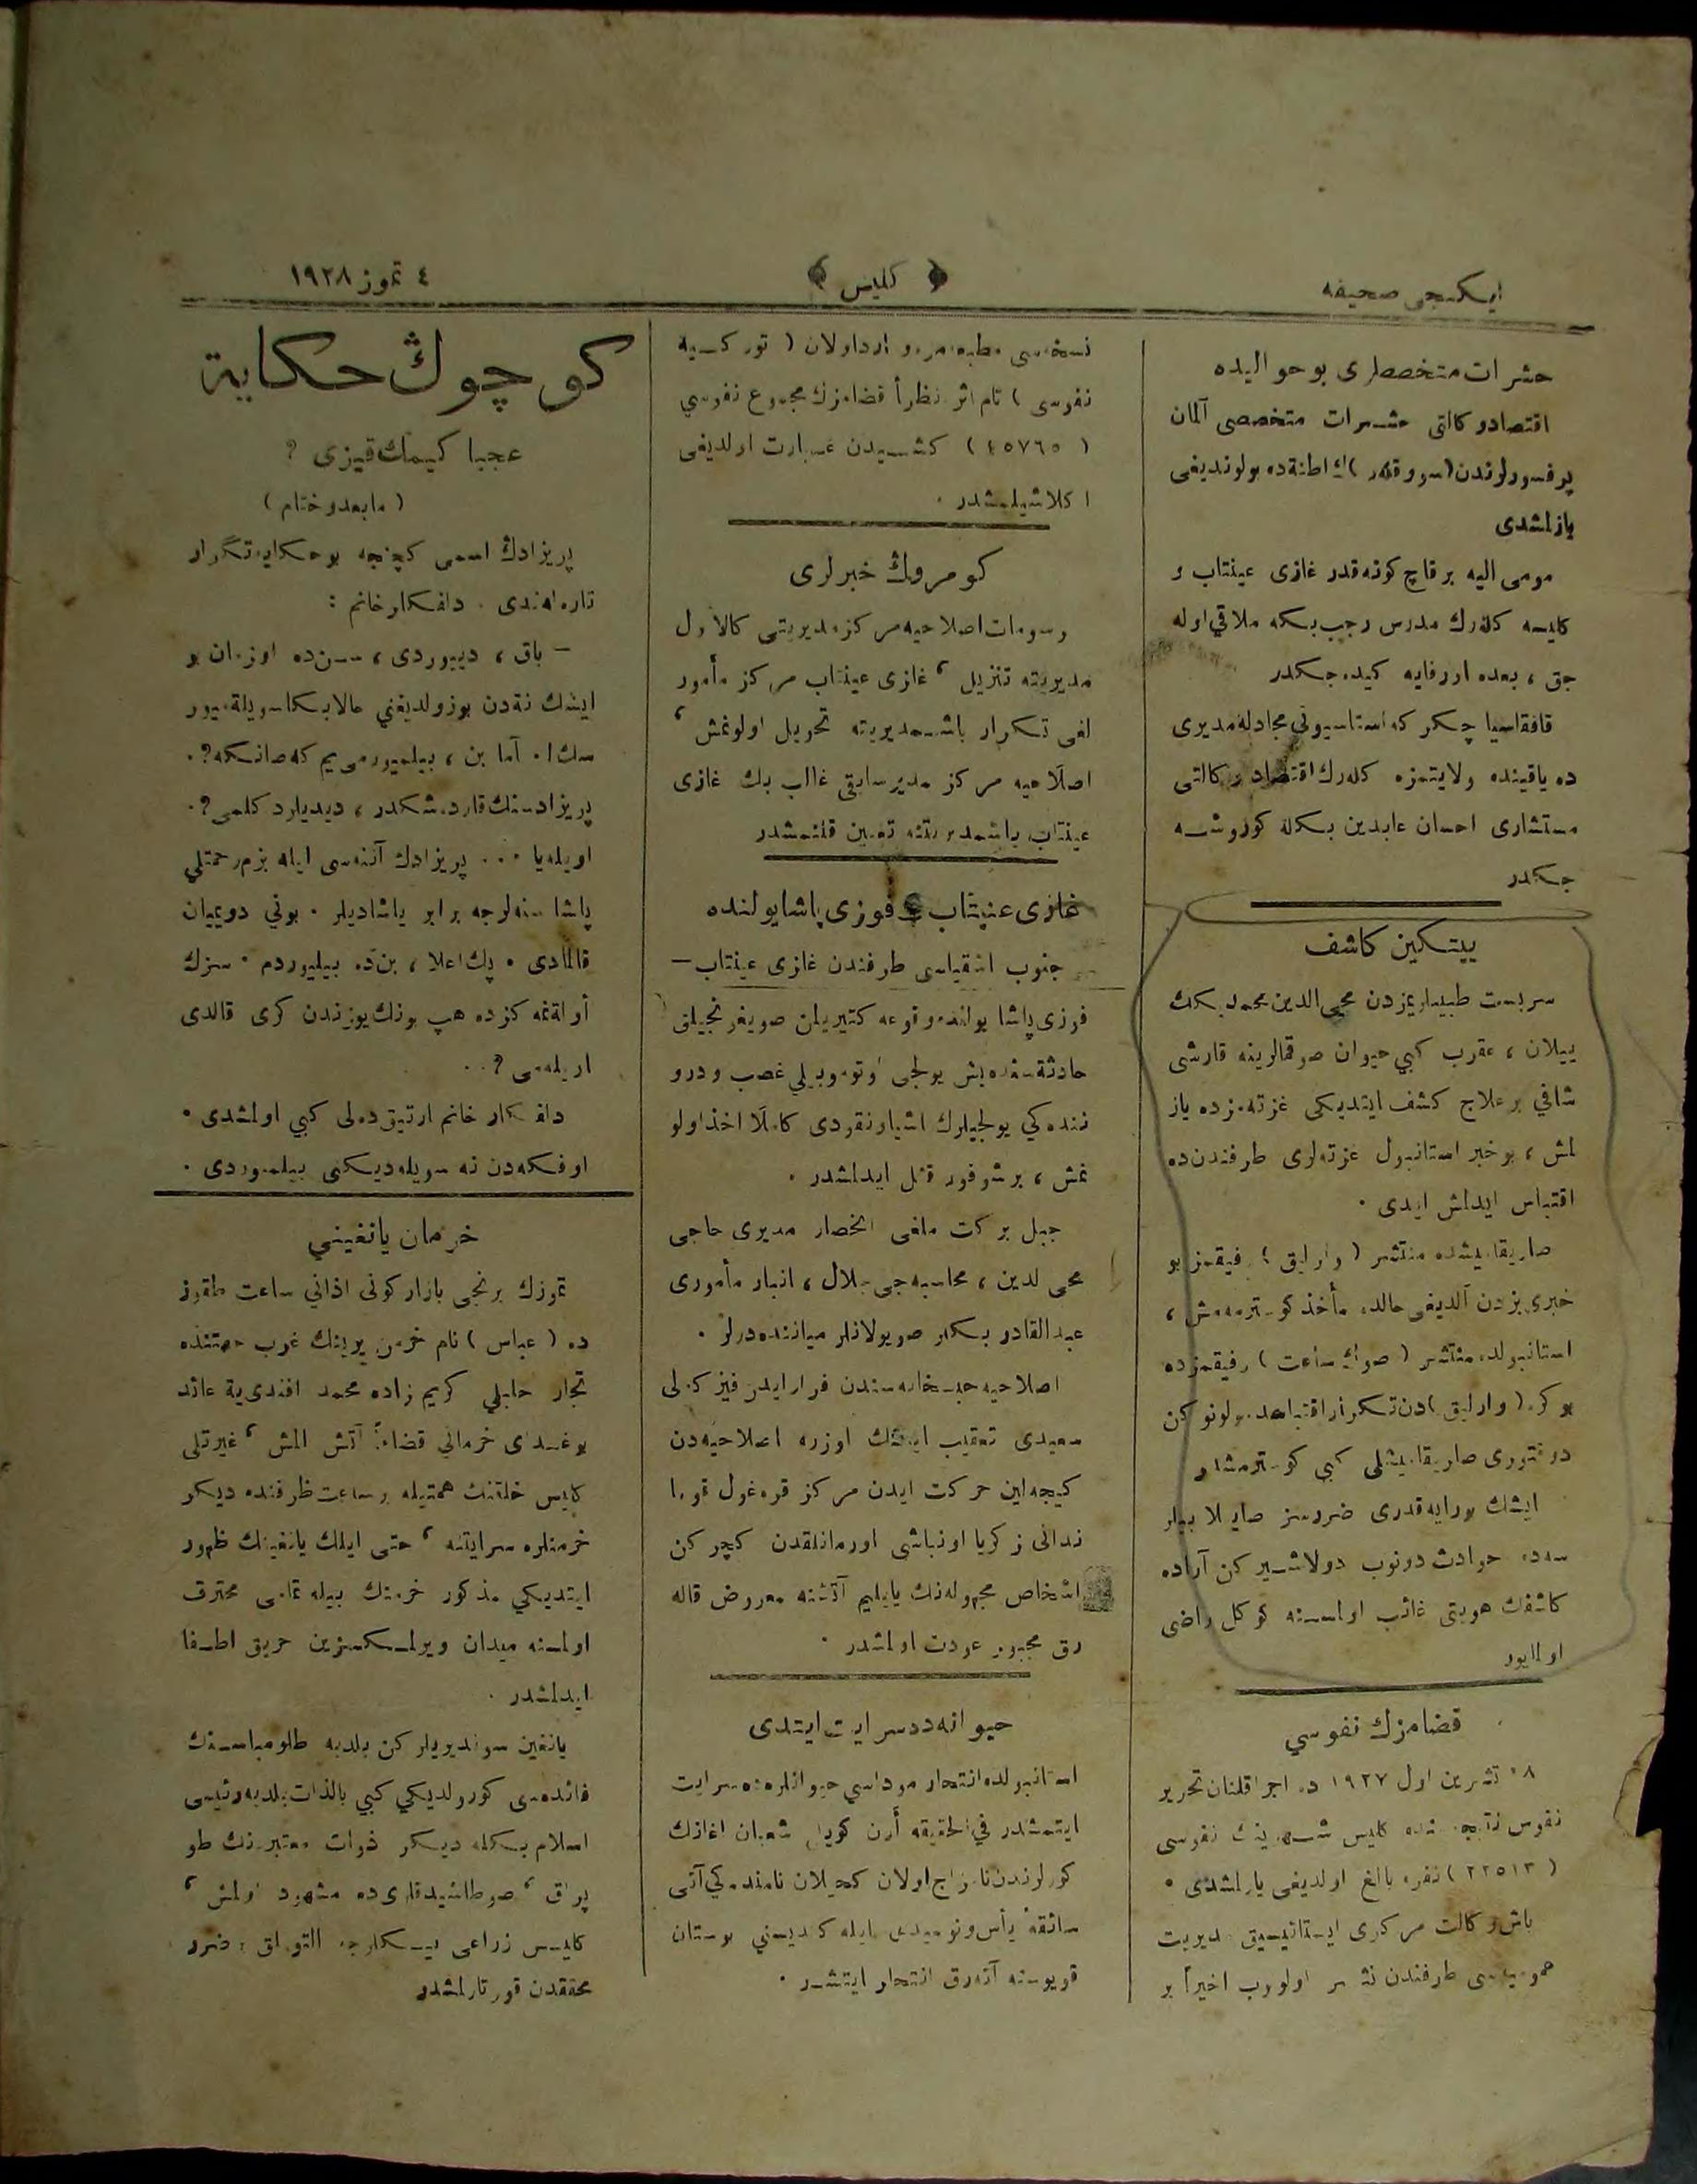 ایکنجی صحیفه
﴿ کلیس ﴾
٤ تموز ١٩٢٨
حشرات متخصصلری بو حوالیده
اقتصاد وکالتی حشرات متخصصی آلمان
پرفسورلرندن ( ) ك اطنه‌ده بولوندیغی
یازلمشدی
مومی الیه بر قاچ کونه قدر غازی عینتاب و
کلیسه کله‌رك مدرس رجب بکه ملاقی اوله
جق ، بعده اورفایه کیده‌جکدر
قافقاسیا چکرکه استاسیونی مجادله مدیری
ده یاقینده ولایتمزه کله‌رك اقتصاد وکالتی
مستشاری احسان عابدین بکله کوروشه
جکدر
ییتکین کاشف
سربست طبیبلریمزدن محیی الدین محمد بکك
ییلان ، عقرب کبی حیوان صوقمالرینه قارشی
شافی بر علاج کشف ایتدیکی غزته‌مزده یاز
لمش ، بو خبر استانبول غزته‌لری طرفندن‌ده
اقتباس ایدلمش ایدی ٠
صاریقامیشده منتشر ( وارلیق ) رفیقمز بو
خبری بزدن آلدیغی حالده مأخذ کوسترمه‌مش ،
استانبولده منتشر ( صوك ساعت ) رفیقمزده
بو کره ( وارلیق ) دن تکرار اقتباسده بولونورکن
دوقتوری صاریقامیشلی کبی کوسترمشدر
ایشك بورایه قدری ضررسز صاییلا بیلیر
سه‌ده حوادث دونوب دولاشیرکن آراده
کاشفك هویتی غائب اولمسنه کوکل راضی
اولمایور
قضامزك نفوسی
٢٨ تشرین اول ١٩٢٧ ده اجرا قلنان تحریر
نفوس نتیجه‌سنده کلیس شهرینك نفوسی
( ٢٢٥١٣ ) نفره بالغ اولدیغی یازلمشدی ٠
باش وکالت مرکزی ایستاتیستیق مدیریت
عمومیه‌سی طرفندن نشر اولونوب اخیراً بر
نسخه‌سی مطبعه‌مزه وارد اولان ( تورکیه
نفوسی ) نام اثره نظراً قضامزك مجموع نفوسی
( ٤٥٧٦٥ ) کشیدن عبارت اولدیغی
اکلاشیلمشدر ٠
کومروك خبرلری
رسومات اصلاحیه مرکز مدیریتی کالاول
مدیریته تنزیل ، غازی عینتاب مرکز مأمور
لغی تکرار باشمدیریته تحویل اولونمش ،
اصلاحیه مرکز مدیر سابقی غالب بك غازی
عینتاب باشمدیریتنه تعیین قلنمشدر
غازی عینتاب – فوزی پاشا یولنده
جنوب اشقیاسی طرفندن غازی عینتاب –
فوزی پاشا یولنده وقوعه کتیریلن صویغونجیلق
حادثه‌سنده بش یولجی اوتوموبیلی غصب و درو
ننده‌کی یولجیلرك اشیا و نقودی کاملاً اخذ اولو
نمش ، بر شوفور قتل ایدلمشدر ٠
جبل برکت ملغی انحصار مدیری حاجی
محی الدین ، محاسبه‌جی جلال ، انبار مأموری
عبدالقادر بکلر صویولانلر میاننده‌درلر ٠
اصلاحیه حبسخانه‌سندن فرار ایدن
سعیدی تعقیب ایتمك اوزره اصلاحیه‌دن
کیجه‌لین حرکت ایدن مرکز قره‌غول قوما
ندانی زکریا اونباشی اورمانلقدن کچرکن
اشخاص مجهوله‌نك یایلیم آتشنه معروض قاله
رق مجبور عودت اولمشدر ٠
حیوانه‌ده سرایت ایتدی
استانبولده انتحار موداسی حیوانلره‌ده سرایت
ایتمشدر فی الحقیقه کویلی شعبان اغانك
اولان کحیلان نامنده‌کی آتی
سائقهٔ یأس و نومیدی ایله کندیسنی بوستان
قویوسنه آته‌رق انتحار ایتمشدر ٠
کوچوك حکایه
عجبا کیمك قیزی ؟
( مابعد و ختام )
پریزادك اسمی کچنجه بو حکایه تکرار
تازه‌لندی . دلفکار خانم :
– باق ، دییوردی ، سن‌ده اوزمان بو
ایشك نه‌دن بوزولدیغنی حالا بکا سویله‌میور
سك ! . آما بن ، بیلمیورمی‌یم که صانکه ؟ .
پریزاد سنك قارده‌شکدر ، دیدیلر دکلمی ؟ .
اویله یا . . . پریزادك آننه‌سی ایله بزم رحمتلی
پاشا سنه‌لرجه برابر یاشادیلر . بونی دویمیان
قالمادی . پك اعلا ، بن‌ده بیلیوردم . سزك
أولنمه‌کزده هپ بونك یوزندن کری قالدی
اویله‌می ؟ . .
دلفکار خانم آرتیق ده‌لی کبی اولمشدی .
اوفکه‌دن نه سویله‌دیکنی بیلمیوردی .
خرمان یانغینی
تموزك برنجی بازار کونی اذانی ساعت طقوز
ده ( عباس ) نام خرمن یرینك غرب جهتنده
تجار حلبلی کریم زاده محمد افندی‌یه عائد
بوغدای خرمانی قضاءً آتش المش ، غیرتلی
کلیس خلقنك همتیله بر ساعت ظرفنده دیکر
خرمنلره سرایتنه ، حتی ایلك یانغینك ظهور
ایتدیکی مذکور خرمنك بیله تمامی محترق
اولمسنه میدان ویرلمکسزین حریق اطفا
ایدلمشدر ٠
یانغین سوندیریلیرکن بلدیه طلومباسنك
فائده‌سی کورولدیکی کبی بالذات بلدیه رئیسی
اسلام بکله دیکر ذوات معتبره‌نك طو
پراق ، صو طاشیدقلری‌ده مشهود اولمش ،
کلیس زراعی ضرر
محققدن قورتارلمشدر